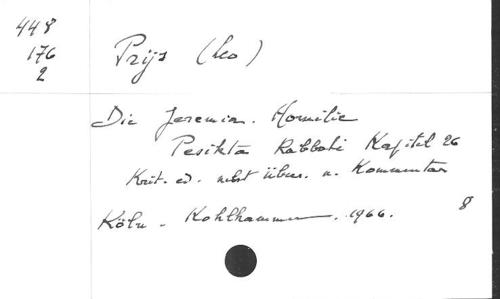 448
176
2
Prijs (Leo)
Die Jeremia-Homilie
Pesikta Rabbati Kapitel 26
Krit. ed. nebst Übers. u. Kommentar
Köln - Kohlhammer. 1966. 8